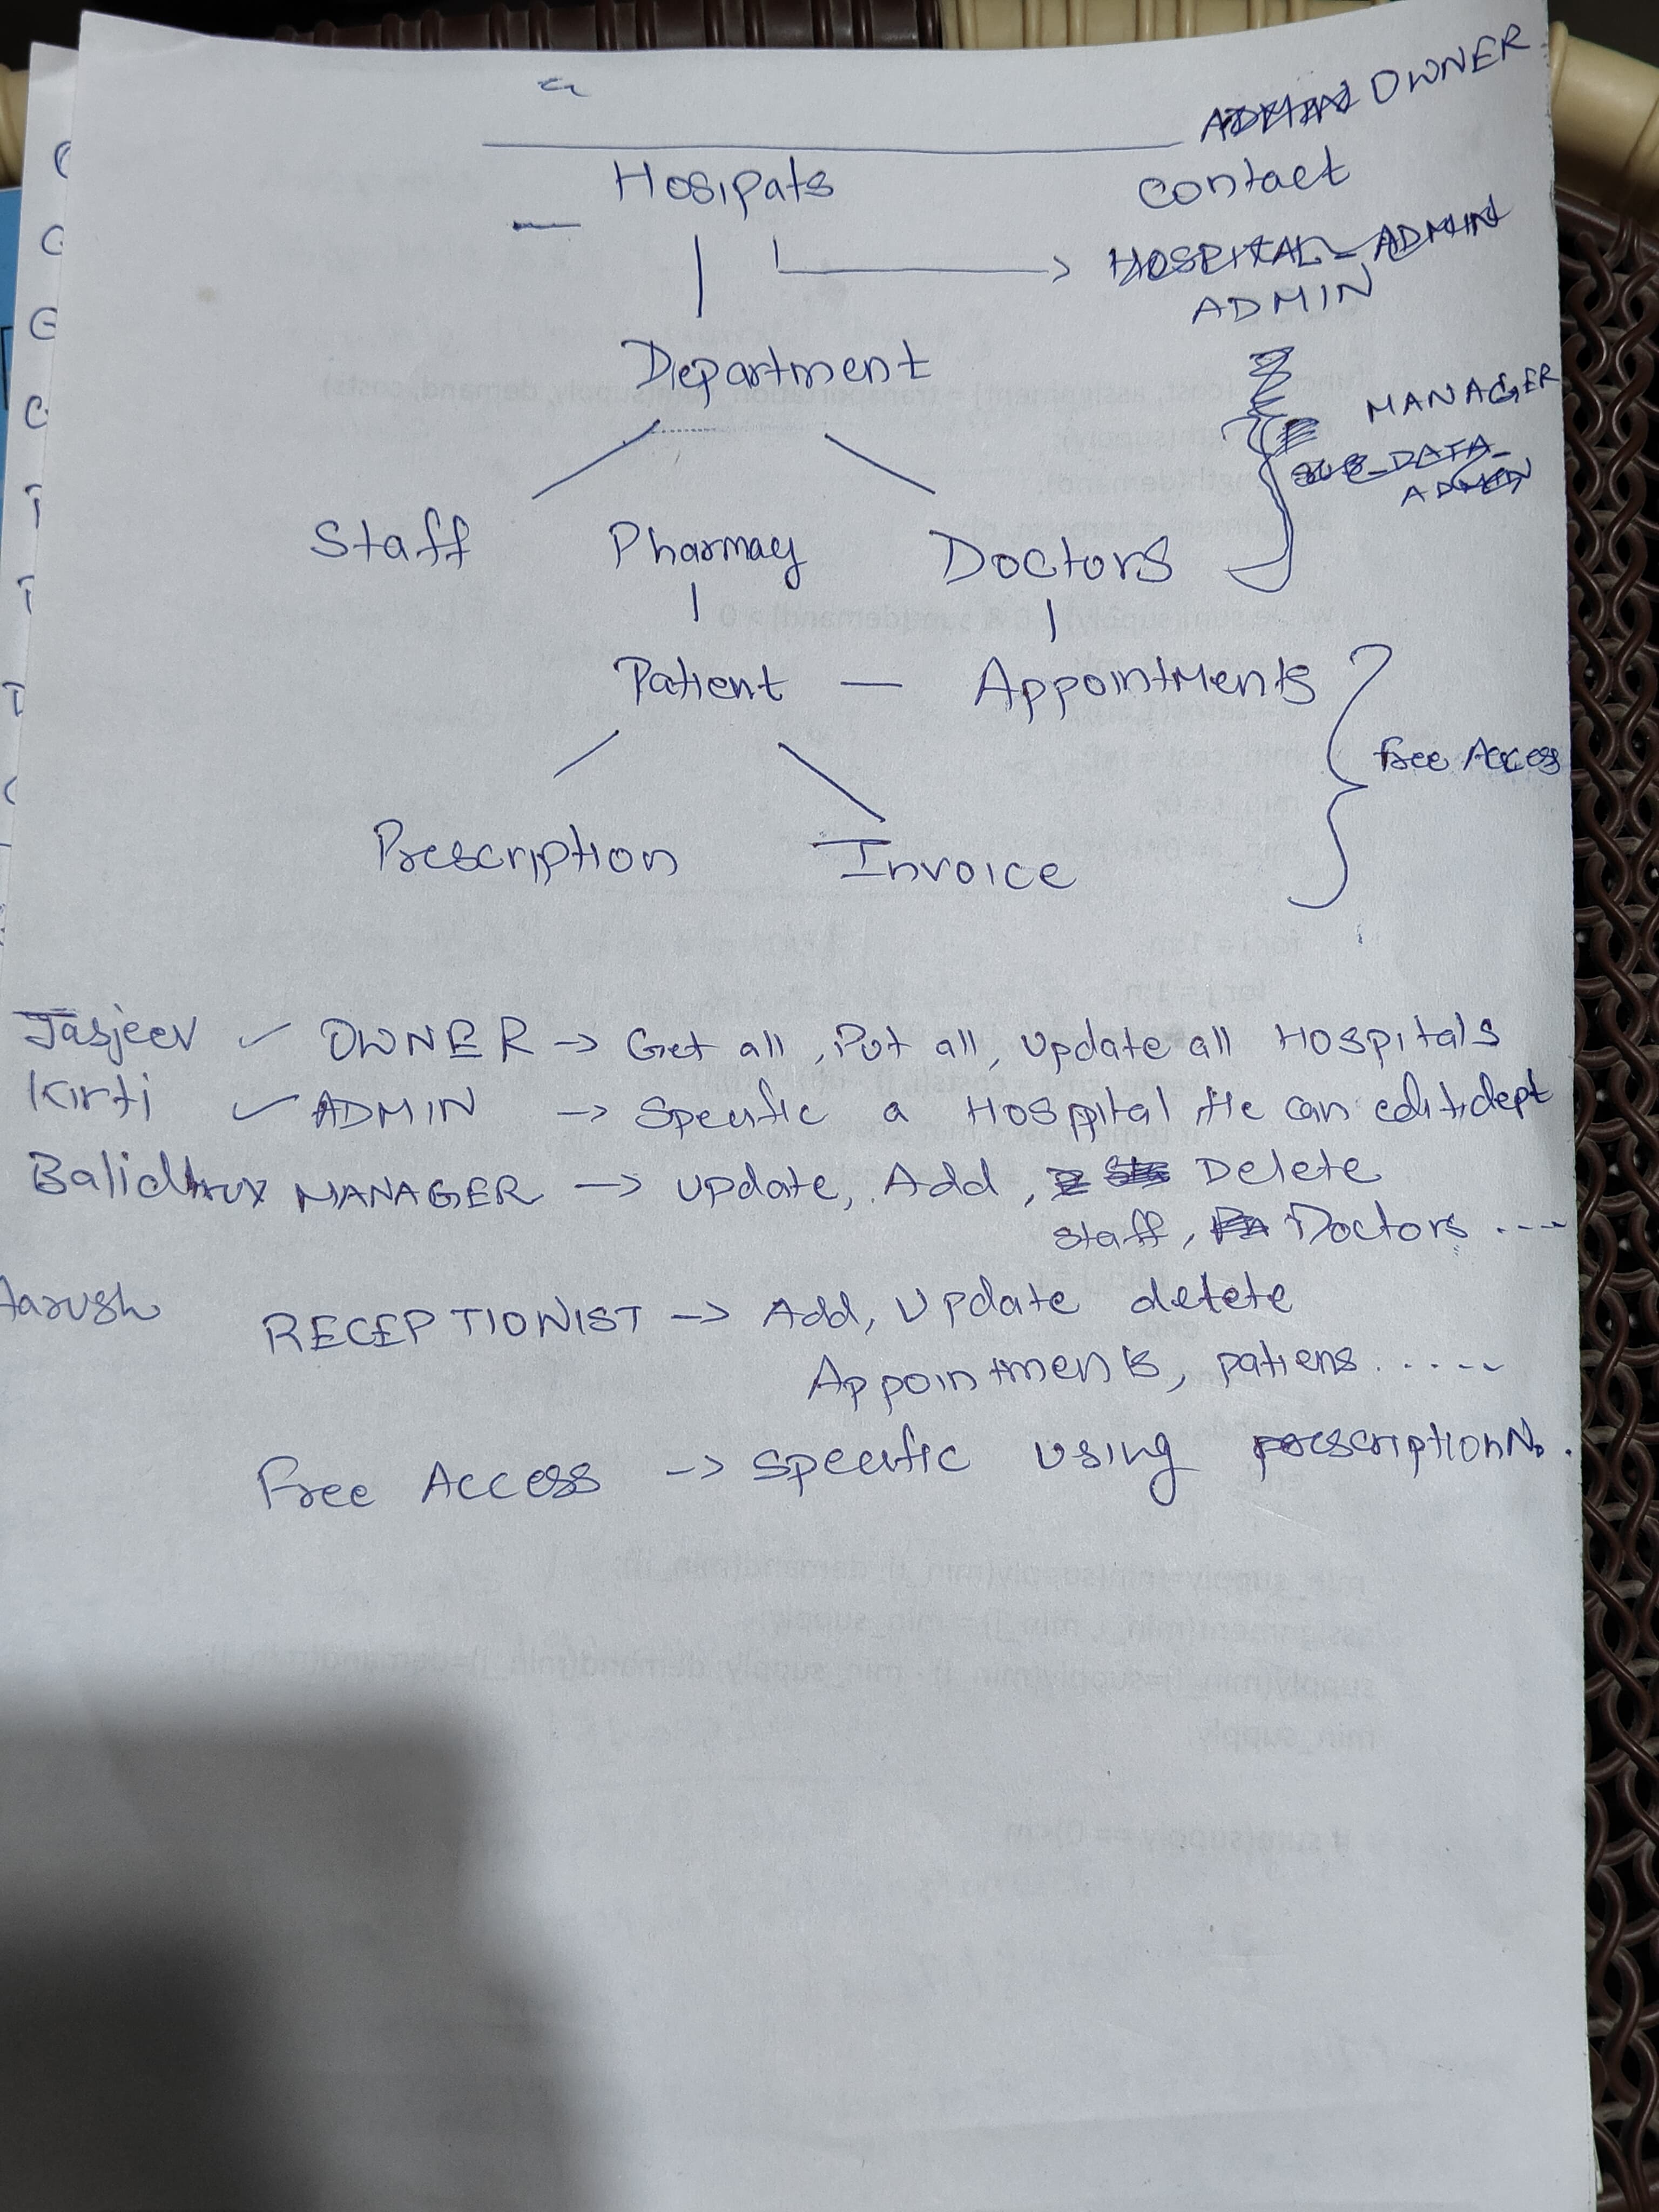 ADMIN OWNER
Hosipats
Contact
HOSPITAL_ADMIN
ADMIN
Department
MANAGER
SUB_DATA_
ADMIN
Staff Pharmacy Doctors
Patient — Appointments
Free Access
Prescription Invoice
Jasjeev ✓ OWNER -> Get all, Put all, Update all Hospitals
Kirti ✓ ADMIN -> Specific a Hospital He can edit dept
MANAGER -> Update, Add, Delete
Staff, Doctors ....
Aarush
RECEPTIONIST -> Add, Update delete
Appointments, patiens .....
Free Access -> Specific using prescriptionNo.